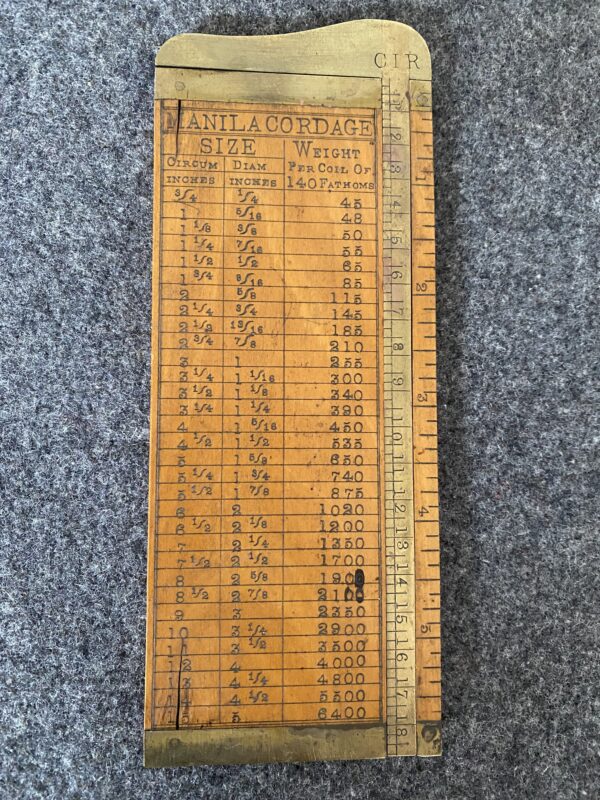 CIR
MANILA CORDAGE
SIZE WEIGHT
CIRCUM DIAM PER COIL OF
INCHES INCHES 140 FATHOMS
3/4 1/4 45
1 5/16 48
1 1/8 3/8 50
1 1/4 7/16 55
1 1/2 1/2 65
1 3/4 9/16 85
2 5/8 115
2 1/4 3/4 145
2 1/2 13/16 185
2 3/4 7/8 210
3 1 255
3 1/4 1 1/16 300
3 1/2 1 1/8 340
3 3/4 1 1/4 390
4 1 5/16 450
4 1/2 1 1/2 535
5 1 5/8 650
5 1/4 1 3/4 740
5 1/2 1 7/8 875
6 2 1020
6 1/2 2 1/8 1200
7 2 1/4 1350
7 1/2 2 1/2 1700
8 2 5/8 1900
8 1/2 2 7/8 2100
9 3 2350
10 3 1/4 2900
11 3 1/2 3500
12 4 4000
13 4 1/4 4800
4 1/2 5500
5 6400
1 2 3 4 5 6 7 8 9 10 11 12 13 14 15 16 17 18
1 2 3 4 5